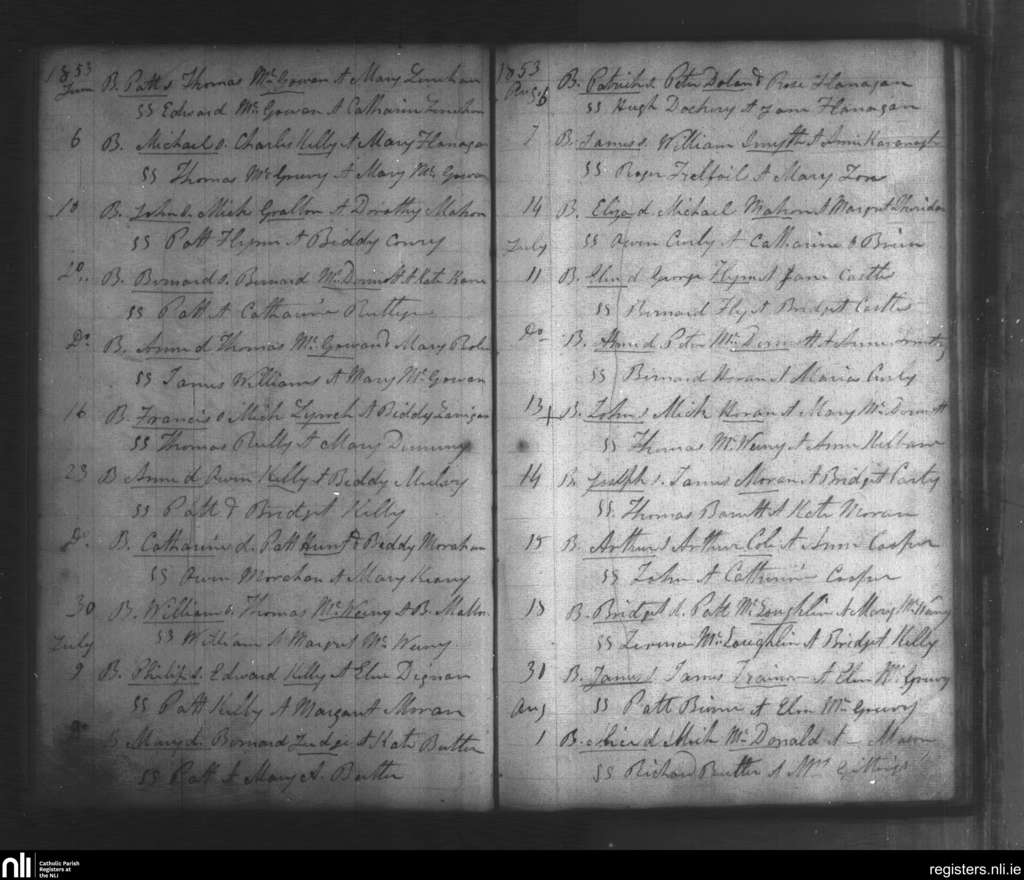 1853
June B. Patt s Thomas McGowan & Mary Linehan
SS Edward McGowan & Catharin Linehan
6 B. Michael s. Charles Kelly & Mary Flanagan
SS Thomas McGreevy & Mary McGowan
10 B. John s. Mick Grallon & Dorothy Mahon
SS Patt Flynn & Biddy Conry
Do. B. Bernard s. Bernard McDermott & Kate Kane
SS Patt & Catharine
Do. B. Anne d Thomas McGowan & Mary
SS James Williams & Mary McGowan
16 B. Francis s Mich Lynch & Biddy Lanigan
SS Thomas Reilly & Mary
23 B Anne d Owen Kelly & Biddy
SS Patt & Bridget Kelly
Do. B. Catharine d. Patt Hunt & Biddy Morahan
SS Owen Morahan & Mary Keavy
30 B. William s. Thomas McWeeny & B. Mallon
July SS William & Margret McWeeny
9 B. Philip s. Edward Kelly & Elen Dignan
SS Patt Kelly & Margaret Moran
Do B Mary d. Bernard Judge & Kate Butler
SS Patt & Mary A. Butler
1853
Aug. 6 B. Patrick s Peter Dolan & Rose Flanagan
SS Hugh Dockery & Jane Flanagan
7 B. James s. William Smyth & Anne Kavanagh
SS Roger & Mary
14 B. Eliza d. Michael Mahon & Margret Sheridan
July SS Owen Curly & Catharine O Brien
11 B. d George Flynn & Jane Castle
SS Bernard & Bridget Castle
Do B. Anne d Peter McDermott & Anne
SS Bernard Horan & Maria Curly
13 + B. John s Mick Horan & Mary McDermott
SS Thomas McWeeny & Anne Kilbane
14 B. Joseph s. James Moran & Bridget Carty
SS. Thomas Barrett & Kate Moran
15 B. Arthur s Arthur Cole & Anne Cooper
SS John & Catherine Cooper
18 B. Bridget d. Patt McLoughlin & Mary McWeeny
SS McLoughlin & Bridget Kelly
31 B. James s. James Trainor & Elen McGreevy
Aug SS Patt Beirne & Elen McGreevy
1 B. d Mick McDonald &
SS Richard Butler & Mrs Gittings
nli Catholic Parish
Registers at
the NLI
registers.nli.ie